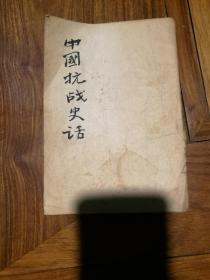 中國抗战史话